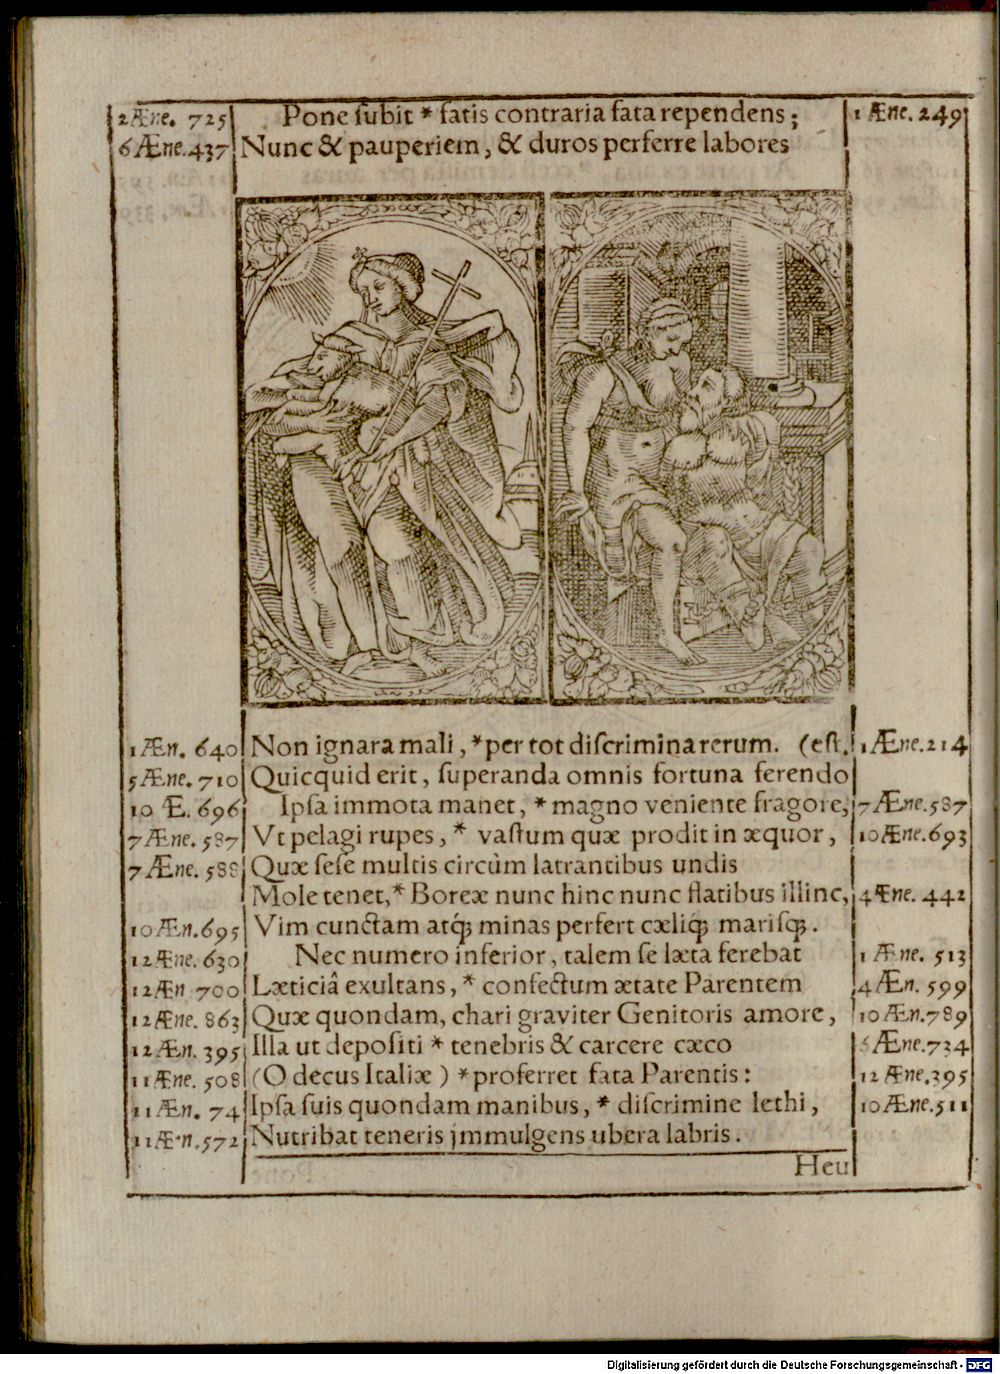 2Æne. 725 Pone ſubit * fatis contraria fata rependens; 1 Æne. 249
6Æne.437 Nunc & pauperiem, & duros perferre labores
1Æn. 640 Non ignara mali, *per tot diſcrimina rerum. (eſt. 1Æne.214
5Æne. 710 Quicquid erit, ſuperanda omnis fortuna ferendo
10 Æ. 696 Ipſa immota manet, * magno veniente fragore, 7Æne.587
7Æne. 587 Vt pelagi rupes, * vaſtum quæ prodit in æquor, 10Æne.693
7Æne. 588 Quæ ſeſe multis circùm latrantibus undis
Mole tenet, * Boreæ nunc hinc nunc flatibus illinc, 4Æne. 442
10Æn.695 Vim cunctam atq́; minas perfert cæliq́; mariſq́;.
12Æne. 630 Nec numero inferior, talem ſe læta ferebat 1 Æne. 513
12Æn 700 Læticiâ exultans, * confectum ætate Parentem 4Æn. 599
12Æne. 863 Quæ quondam, chari graviter Genitoris amore, 10Æn.789
12Æn. 395 Illa ut depoſiti * tenebris & carcere cæco 6Æne.734
11Æne. 508 (O decus Italiæ) * proferret fata Parentis: 12Æne.395
11Æn. 74 Ipſa ſuis quondam manibus, * diſcrimine lethi, 10Æne.511
11Æn.572 Nutribat teneris jmmulgens ubera labris.
Heu
Digitalisierung gefördert durch die Deutsche Forschungsgemeinschaft - DFG